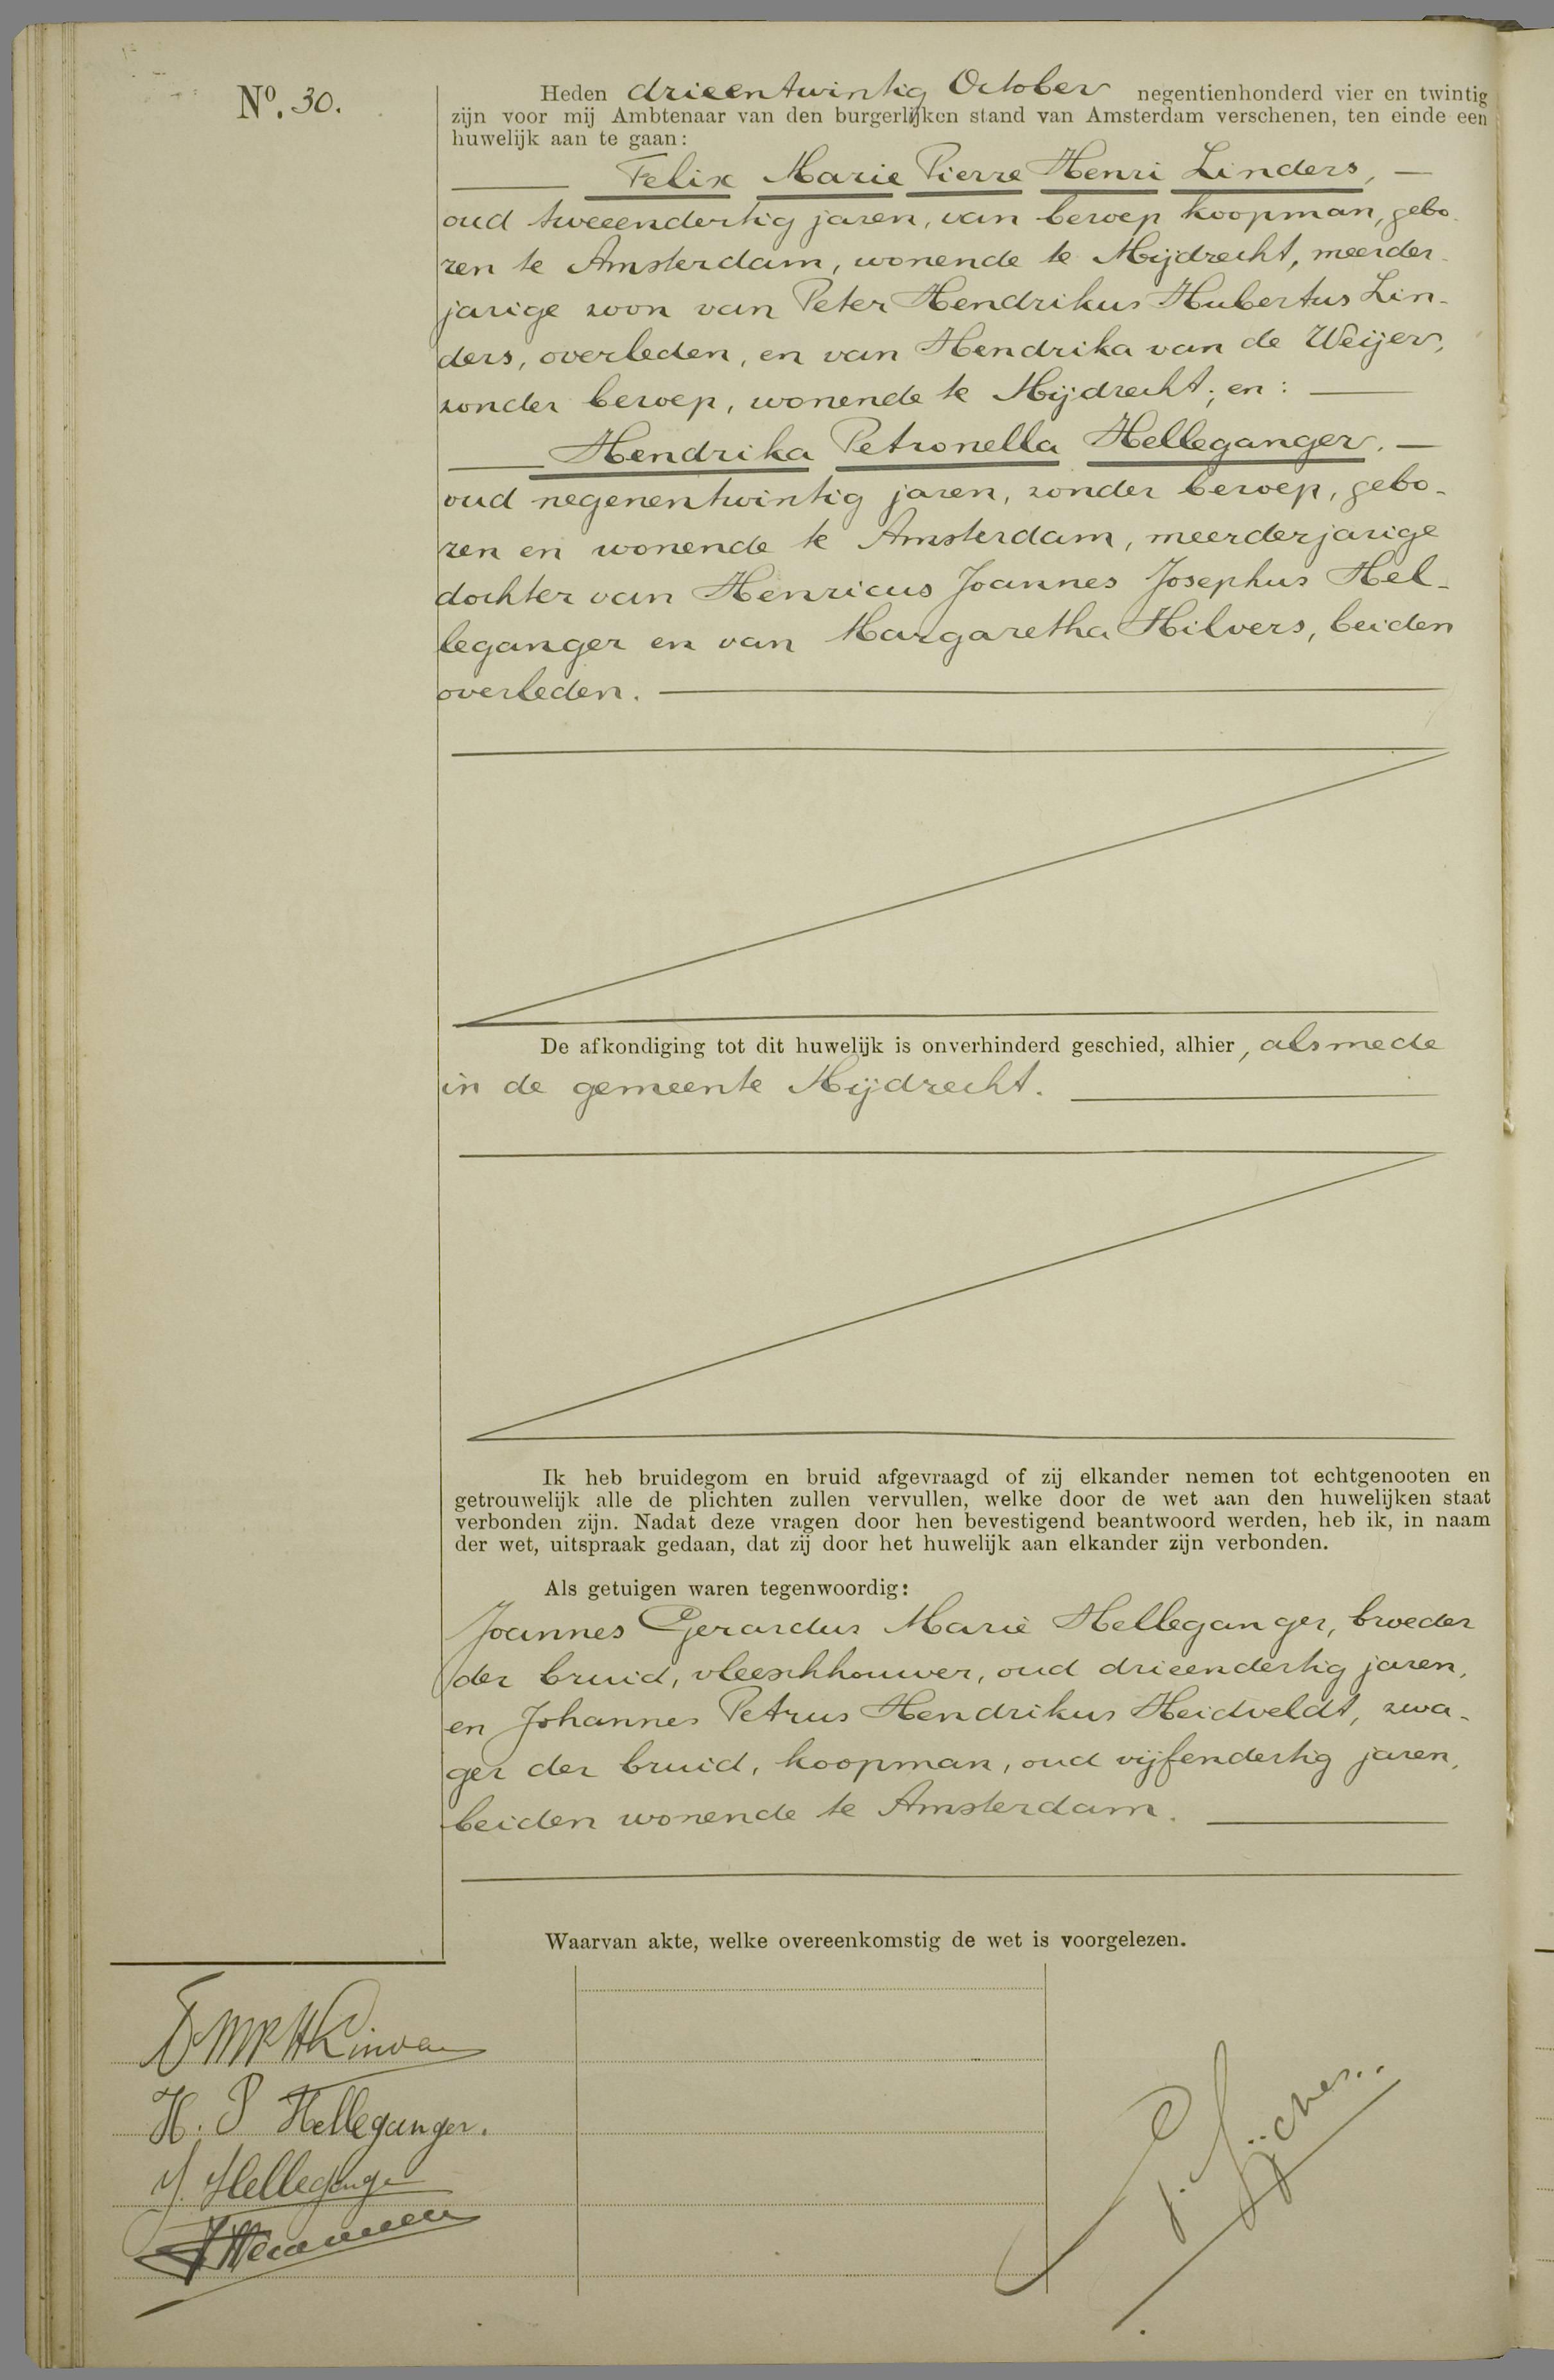 Nº. 30.
Heden drieentwintig October negentienhonderd vier en twintig
zijn voor mij Ambtenaar van den burgerlijken stand van Amsterdam verschenen, ten einde een
huwelijk aan te gaan:
Felix Marie Pierre Henri Linders,
oud tweeendertig jaren, van beroep koopman, gebo-
ren te Amsterdam, wonende te Mijdrecht, meerder-
jarige zoon van Peter Hendrikus Hubertus Lin-
ders, overleden, en van Hendrika van de Weijer,
zonder beroep, wonende te Mijdrecht; en:
Hendrika Petronella Helleganger,
oud negenentwintig jaren, zonder beroep, gebo-
ren en wonende te Amsterdam, meerderjarige
dochter van Henricus Joannes Josephus Hel-
leganger en van Margaretha Hilvers, beiden
overleden.
De afkondiging tot dit huwelijk is onverhinderd geschied, alhier, alsmede
in de gemeente Mijdrecht.
Ik heb bruidegom en bruid afgevraagd of zij elkander nemen tot echtgenooten en
getrouwelijk alle de plichten zullen vervullen, welke door de wet aan den huwelijken staat
verbonden zijn. Nadat deze vragen door hen bevestigend beantwoord werden, heb ik, in naam
der wet, uitspraak gedaan, dat zij door het huwelijk aan elkander zijn verbonden.
Als getuigen waren tegenwoordig:
Joannes Gerardus Marie Helleganger, broeder
der bruid, vleeschhouwer, oud drieendertig jaren,
en Johannes Petrus Hendrikus Heidveldt, zwa-
ger der bruid, koopman, oud vijfendertig jaren,
beiden wonende te Amsterdam.
Waarvan akte, welke overeenkomstig de wet is voorgelezen.
H. P Helleganger.
J. Helleganger